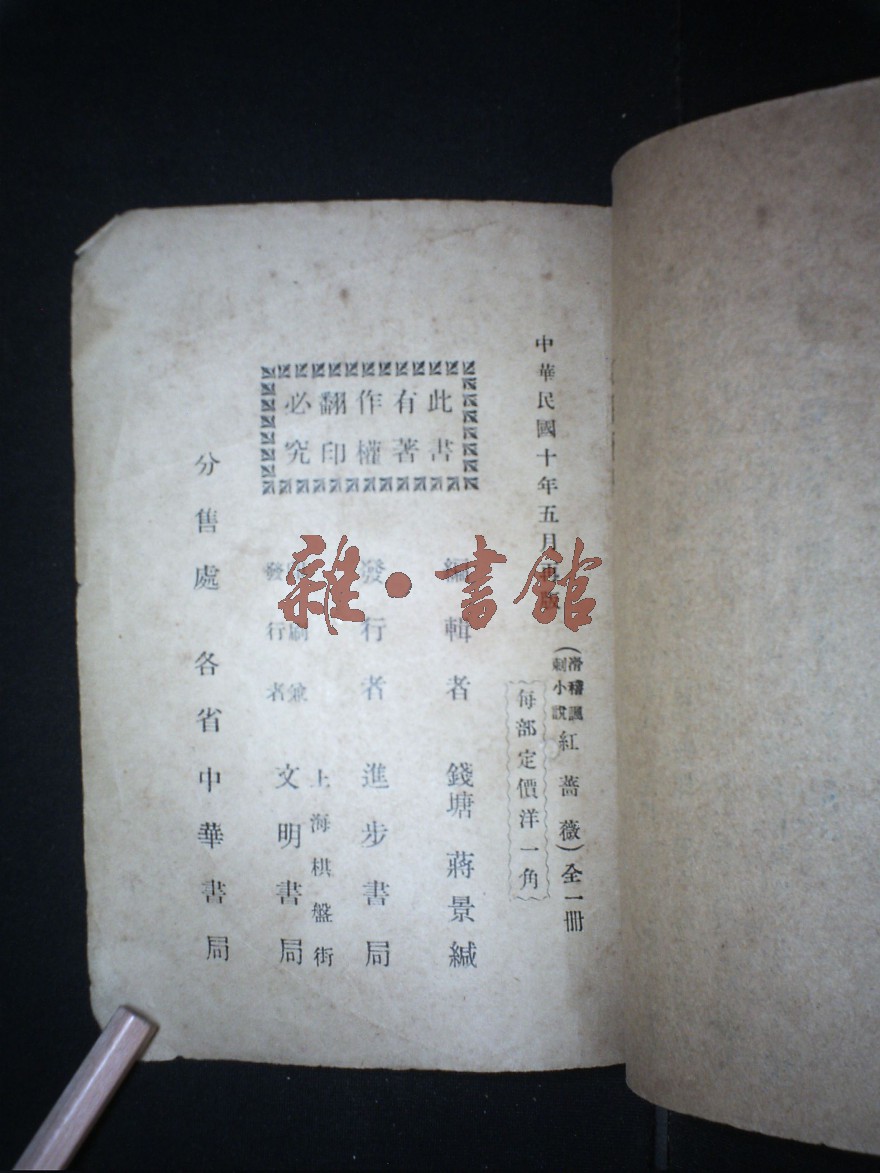 中華民國十年五月再版
(滑稽諷刺小說紅薔薇)全一冊
每部定價洋一角
此書
有著
作權
翻印
必究
編輯者 錢塘蔣景緘
發行者 進步書局
印刷兼發行者 上海棋盤街文明書局
分售處 各省中華書局
雜•書館